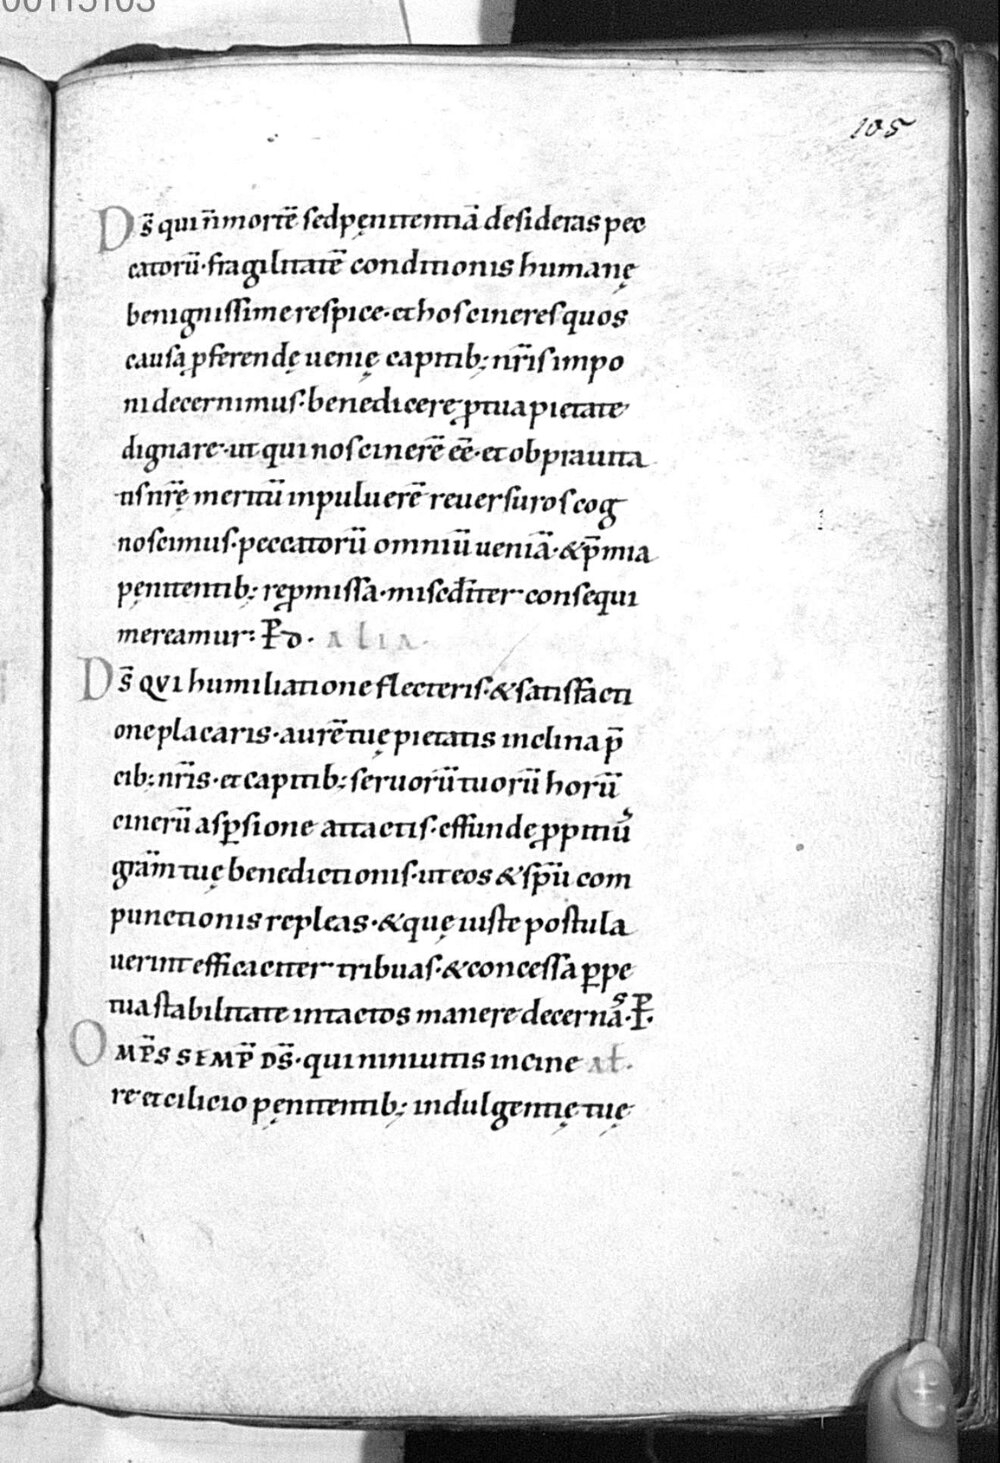 00115103
105
Ds̄ qui n̄ mortē sed pęnitentiā desideras pec
catorū· fragilitatē conditionis humanę
benignissime respice· et hos cineres quos
causa p̱ferendę uenię capitib; nr̄is impo
ni decernimus· benedicere ꝓ tua pietate
dignare· ut qui nos cinerē eē· et ob prauita
tis nr̄ę meritū in puluerē reuersuros cog
noscimus· peccatorū omniū ueniā· & p̄mia
pęnitentib; repromissa· misedīter consequi
mereamur; P̱ d· ALIA·
Ds̄ QVI humiliatione flecteris· & satisfacti
one placaris· aurē tuę pietatis inclina p̄
cib; nr̄is· et capitib; seruorū tuorū horū
cinerū asꝑsione attactis· effunde ꝓpitiꝰ
grām tuę benedictionis· ut eos & sp̄u com
punctionis repleas· & quę iuste postula
uerint efficaciter tribuas· & concessa ꝑpe
tua stabilitate intactos manere decernās· P̱·
OMP̄S SEMP̄ DS̄· qui niniuitis in cine AŁ·
re et cilicio pęnitentib; indulgentię tuę